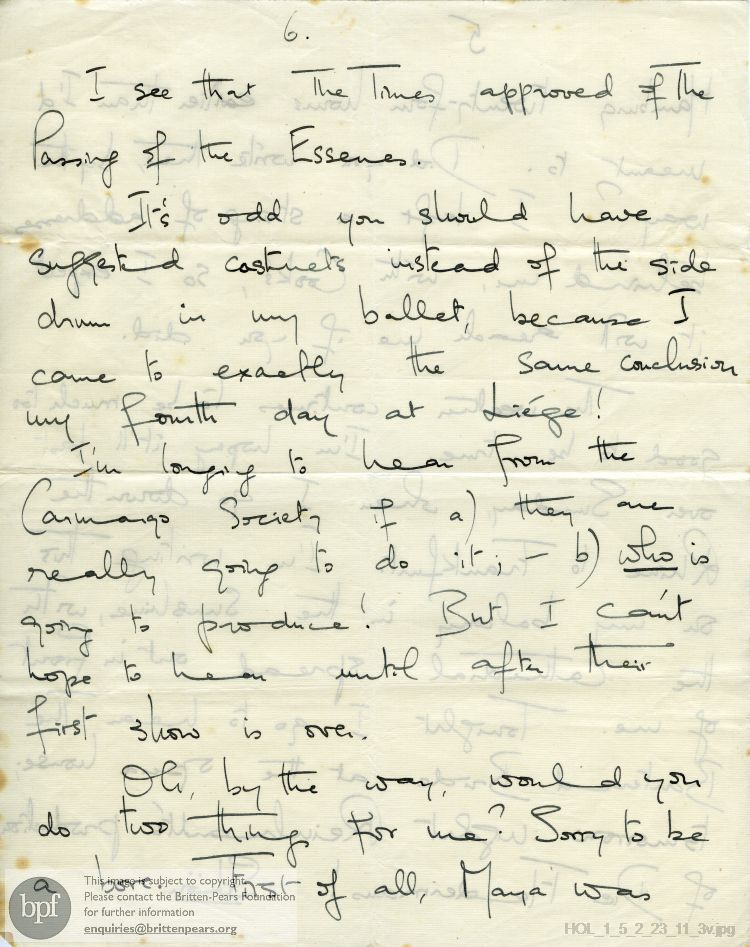 6.
I see that The Times approved of The
Passing of the Essenes.
It's odd you should have
suggested castnets instead of the side
drum in my ballet, because I
came to exactly the same conclusion
my fourth day at Liége!
I'm longing to hear from the
Camargo Society if a) they are
really going to do it; – b) who is
going to produce! But I can't
hope to hear until after their
first show is over.
Oh, by the way, would you
do two things for me? Sorry to be
a bore. First of all, Maya was
bpf
This image is subject to copyright.
Please contact the Britten-Pears Foundation
for further information
enquiries@brittenpears.org
HOL_1_5_2_23_11_3v.jpg